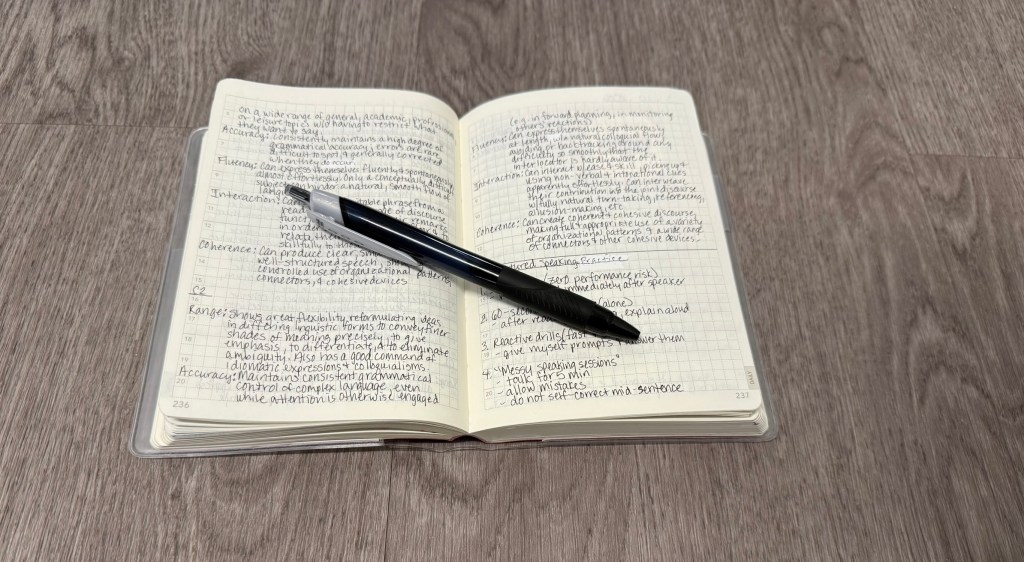 on a wide range of general, academic, professional
or leisure topics w/o having to restrict what
they want to say.
Accuracy: Consistently maintain a high degree of
grammatical accuracy; errors are
difficult to spot, & generally corrected
when they do occur.
Fluency: Can express themselves fluently & spontaneously,
almost effortlessly. Only a conceptually difficult
subject hinder a natural, smooth flow of
Interaction: Can table phrase from a
read of discourse
their remarks
in order
relate
skillfully to those
Coherence: Can produce clear,
well-structured speech,
controlled use of organizational patterns,
connectors, & cohesive devices
C2
Range: Shows great flexibility, reformulating ideas
in differing linguistic forms to convey finer
shades of meaning precisely, to give
emphasis, to differentiate, & to eliminate
ambiguity. Also has a good command of
idiomatic expressions & colloquialisms.
Accuracy: Maintains consistent grammatical
control of complex language, even
while attention is otherwise engaged
236
(e.g. in forward planning, in monitoring
others' reactions)
Fluency: Can express themselves spontaneously
at length w/ a natural colloquial flow,
avoiding or backtracking around any
difficulty so smoothly that the
interlocutor is hardly aware of it.
Interaction: Can interact w/ ease & skill, picking up &
using non-verbal & intonational cues
apparently effortlessly. Can interweave
their contribution into the joint discourse
w/ fully natural turn-taking, referencing,
allusion-making, etc.
Coherence: Can create coherent & cohesive discourse,
making full & appropriate use of a variety
of organizational patterns & a wide range
of connectors & other cohesive devices.
Speaking Practice
(zero performance risk)
immediately after speaker
2. 60-sec (alone)
- after explain aloud
3. Reactive drills (fast
- give myself prompts answer them
4. "Messy speaking sessions"
- talk for 5 min
- allow mistakes
- do not self-correct mid-sentence
237